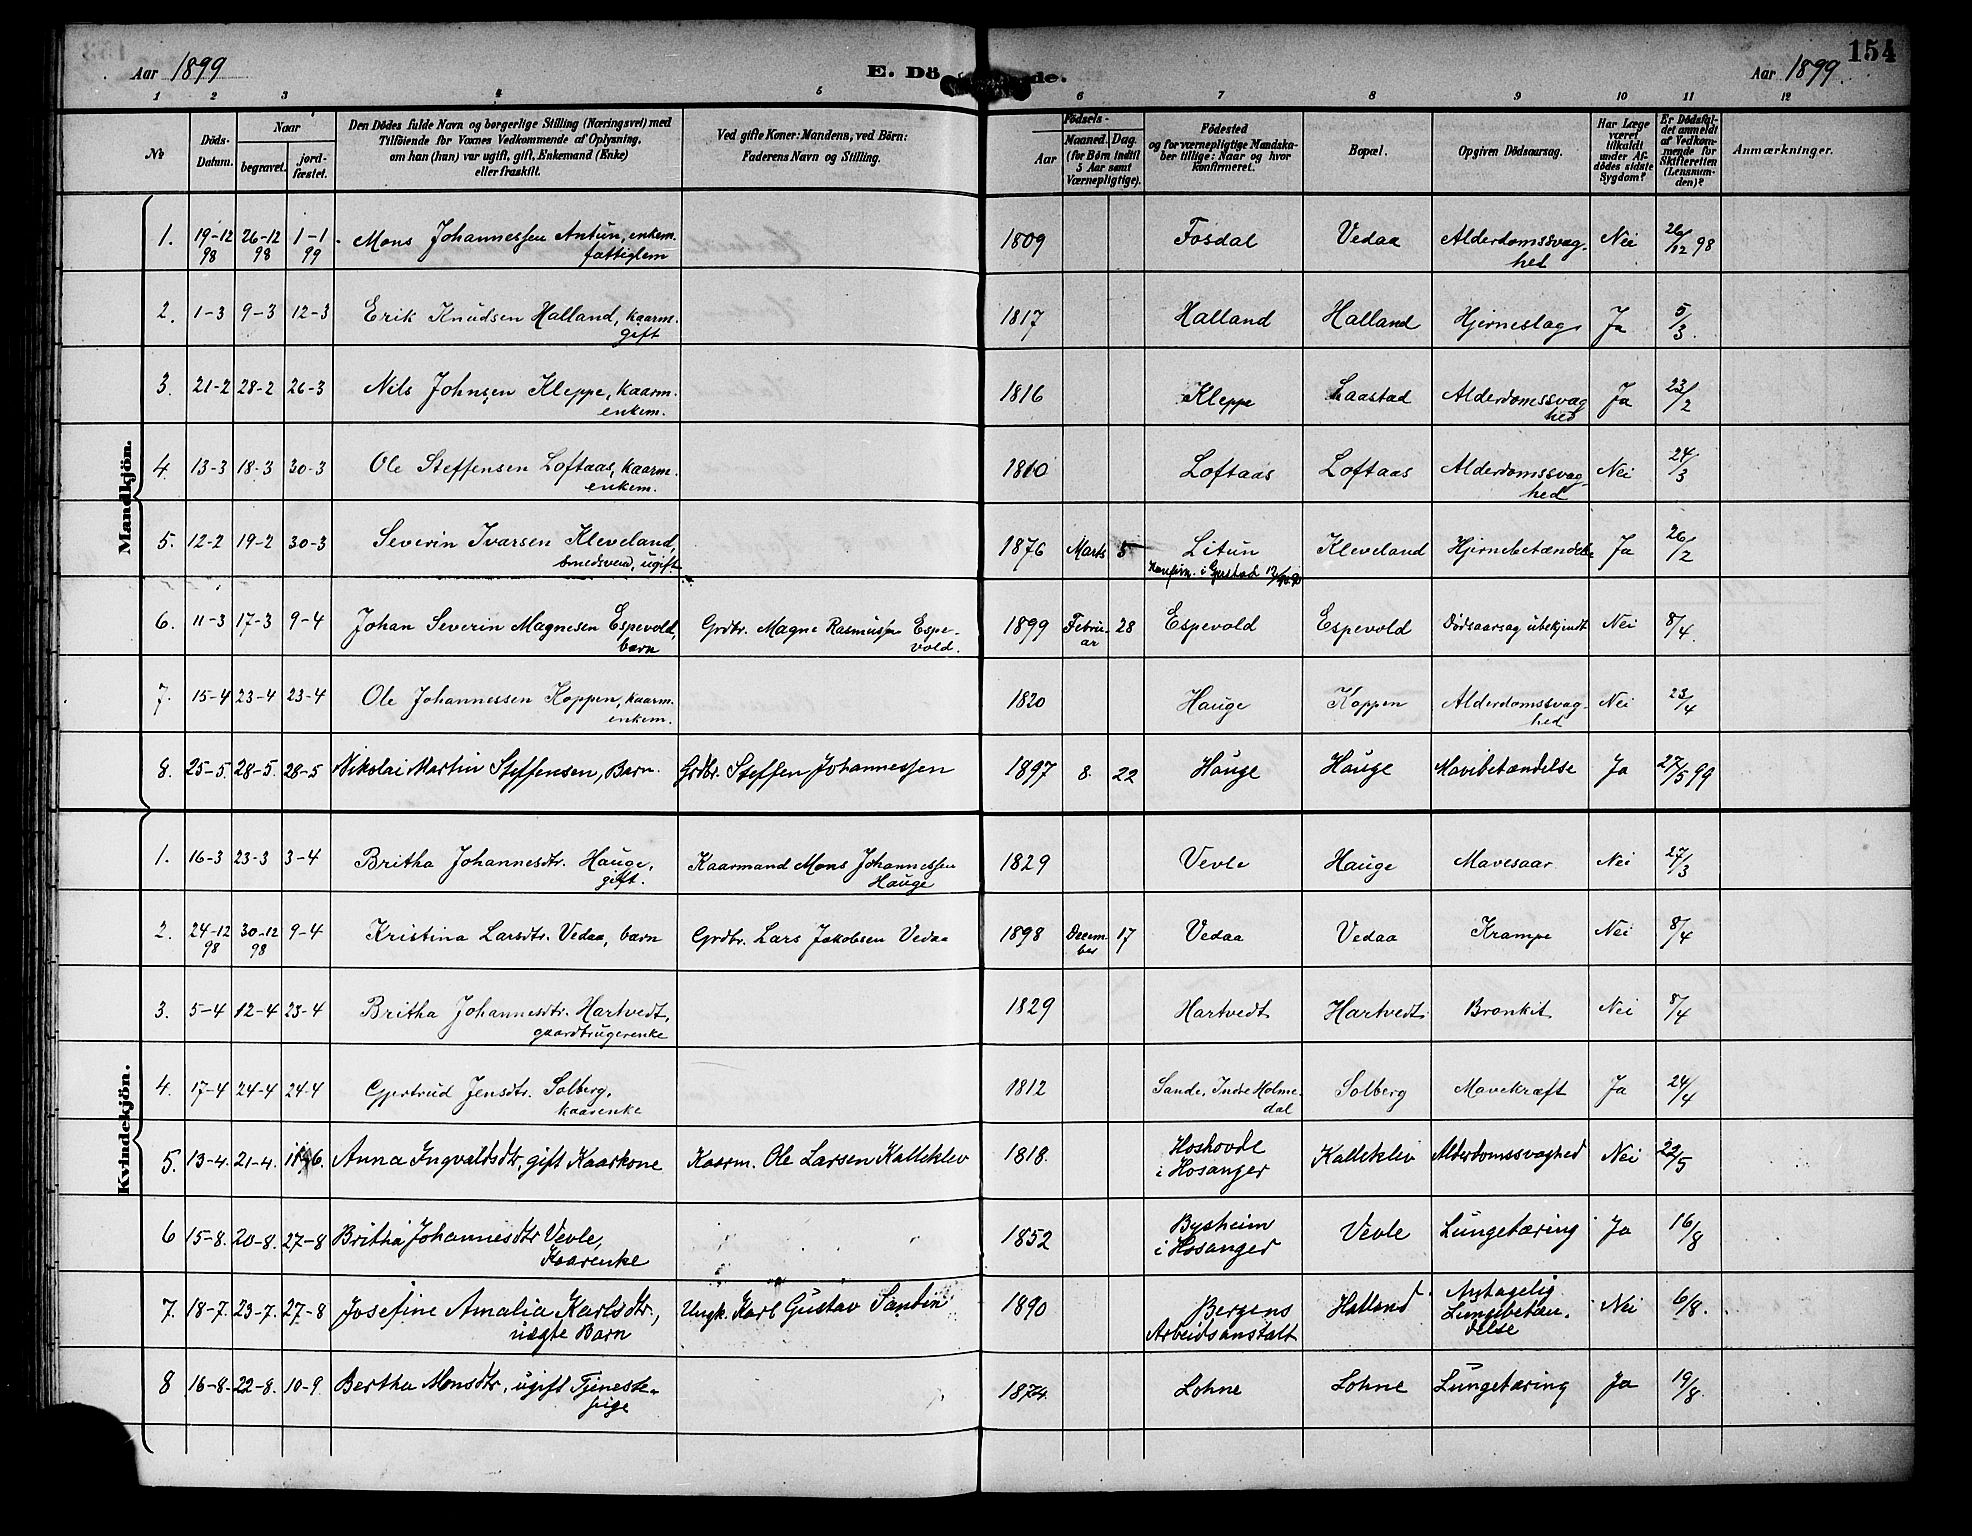 Aar 1899 E. Dö de. Aar 1899. 154
1 2 3 4 5 6 7 8 9 10 11 12
№ Döds-Datum. Naar begravet. jord-fæstet. Den Dödes fulde Navn og borgerlige Stilling (Næringsvei) med Tilföiende for Voxnes Vedkommende af Oplysning, om han (hun) var ugift, gift, Enkemand (Enke) eller fraskilt. Ved gifte Koner: Mandens, ved Börn: Faderens Navn og Stilling. Födsels- Aar Maaned. Dag. (for Börn indtil 5 Aar samt Værnepligtige). Födested og for værnepligtige Mandskaber tillige: Naar og hvor konfirmeret. Bopæl. Opgiven Dödsaarsag. Har Læge været tilkaldt under Afdödes sidste Sygdom? Er Dödsfaldet anmeldt af Vedkommende for Skifteretten (Lensmanden)? Anmærkninger.
Mandkjön.
1. 19-12 98 26-12 98 1-1 99 Mons Johannessen Antun, enkem. fattiglem 1809 Fosdal Vedaa Alderdomssvaghed Nei 26/12 98
2. 1-3 9-3 12-3 Erik Knudsen Halland, kaarm. gift 1817 Halland Halland Hjerneslag Ja 5/3.
3. 21-2 28-2 26-3 Nils Johnsen Kleppe, kaarm. enkem. 1816 Kleppe Laastad Alderdomssvaghed Ja 23/2
4. 13-3 18-3 30-3 Ole Steffensen Loftaas, kaarm. enkem. 1810 Loftaas Loftaas Alderdomssvaghed Nei 24/3
5. 12-2 19-2 30-3 Severin Ivarsen Kleveland, smedsvend, ugift 1876 Marts 5 Litun Konfirm. i Kleveland Hjernebetændelse Ja 26/2
6. 11-3 17-3 9-4 Johan Severin Magnesen Espevold, barn Grdbr. Magne Rasmussen Espevold. 1899 Februar 28 Espevold Espevold Dødsaarsag ubekjendt Nei 8/4.
7. 15-4 23-4 23-4 Ole Johannessen Koppen, kaarm. enkem. 1820 Hauge Koppen Alderdomssvaghed Nei 23/4
8. 25-5. 28-5. 28-5 Nikolai Martin Steffensen, Barn. Grdbr. Steffen Johannessen 1897 8. 22 Hauge Hauge Mavebetændelse Ja 27/5 99
Kvindekjön.
1. 16-3 23-3 3-4 Britha Johannesdtr. Hauge, gift. Kaarmand Mons Johannessen Hauge 1829 Vevle Hauge Mavesaar Nei 27/3
2. 24-12 98 30-12 98 9-4 Kristina Larsdtr. Vedaa, barn Grdbr. Lars Jakobsen Vedaa 1898 December 17 Vedaa Vedaa Krampe Nei 8/4
3. 5-4 12-4 23-4 Britha Johannesdtr. Hartvedt, gaardbrugerenke 1829 Hartvedt Hartvedt Bronkit Nei 8/4
4. 17-4 24-4 24-4 Gjertrud Jensdtr. Solberg, kaarenke 1812 Sande, Indre Holmedal Solberg Mavekræft Ja 24/4
5. 13-4. 21-4. Anna Ingvaldsdtr, gift Kaarkone Kaarm. Ole Larsen Kalleklev 1818. Hoshovde i Hosanger Kalleklev Alderdomssvaghed Nei 22/5
6 15-8. 20-8. 27-8 Britha Johannesdtr Vevle, Kaarenke 1852 Bysheim i Hosanger Vevle Lungetæring Ja 16/8
7. 18-7. 23-7. 27-8 Josefine Amalia Karlsdtr, uægte Barn Ungk. Karl Gustav Santin 1890 Bergens Arbeidsanstalt Halland Lungebetændelse Nei 6/8.
8 16-8. 22-8. 10-9. Bertha Monsdtr, ugift Tjenestepige 1874. Lohne Lohne Lungetæring Ja 19/8.